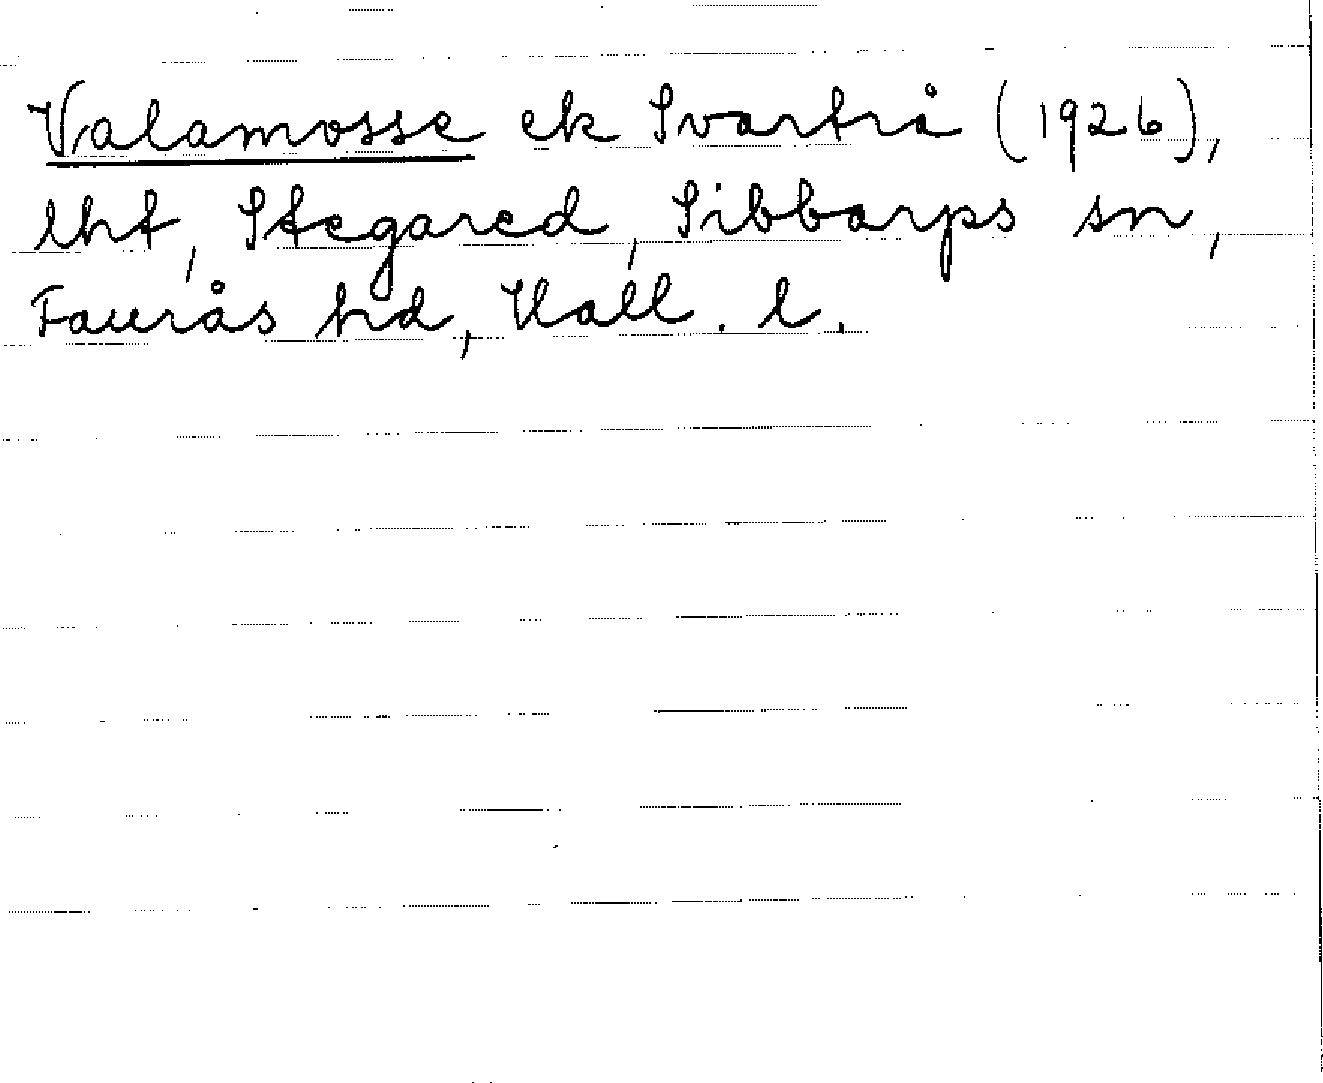 Valamosse ek Svartrå (1926),
lht, Stegared, Sibbarps sn,
Faurås hd, Hall. l.